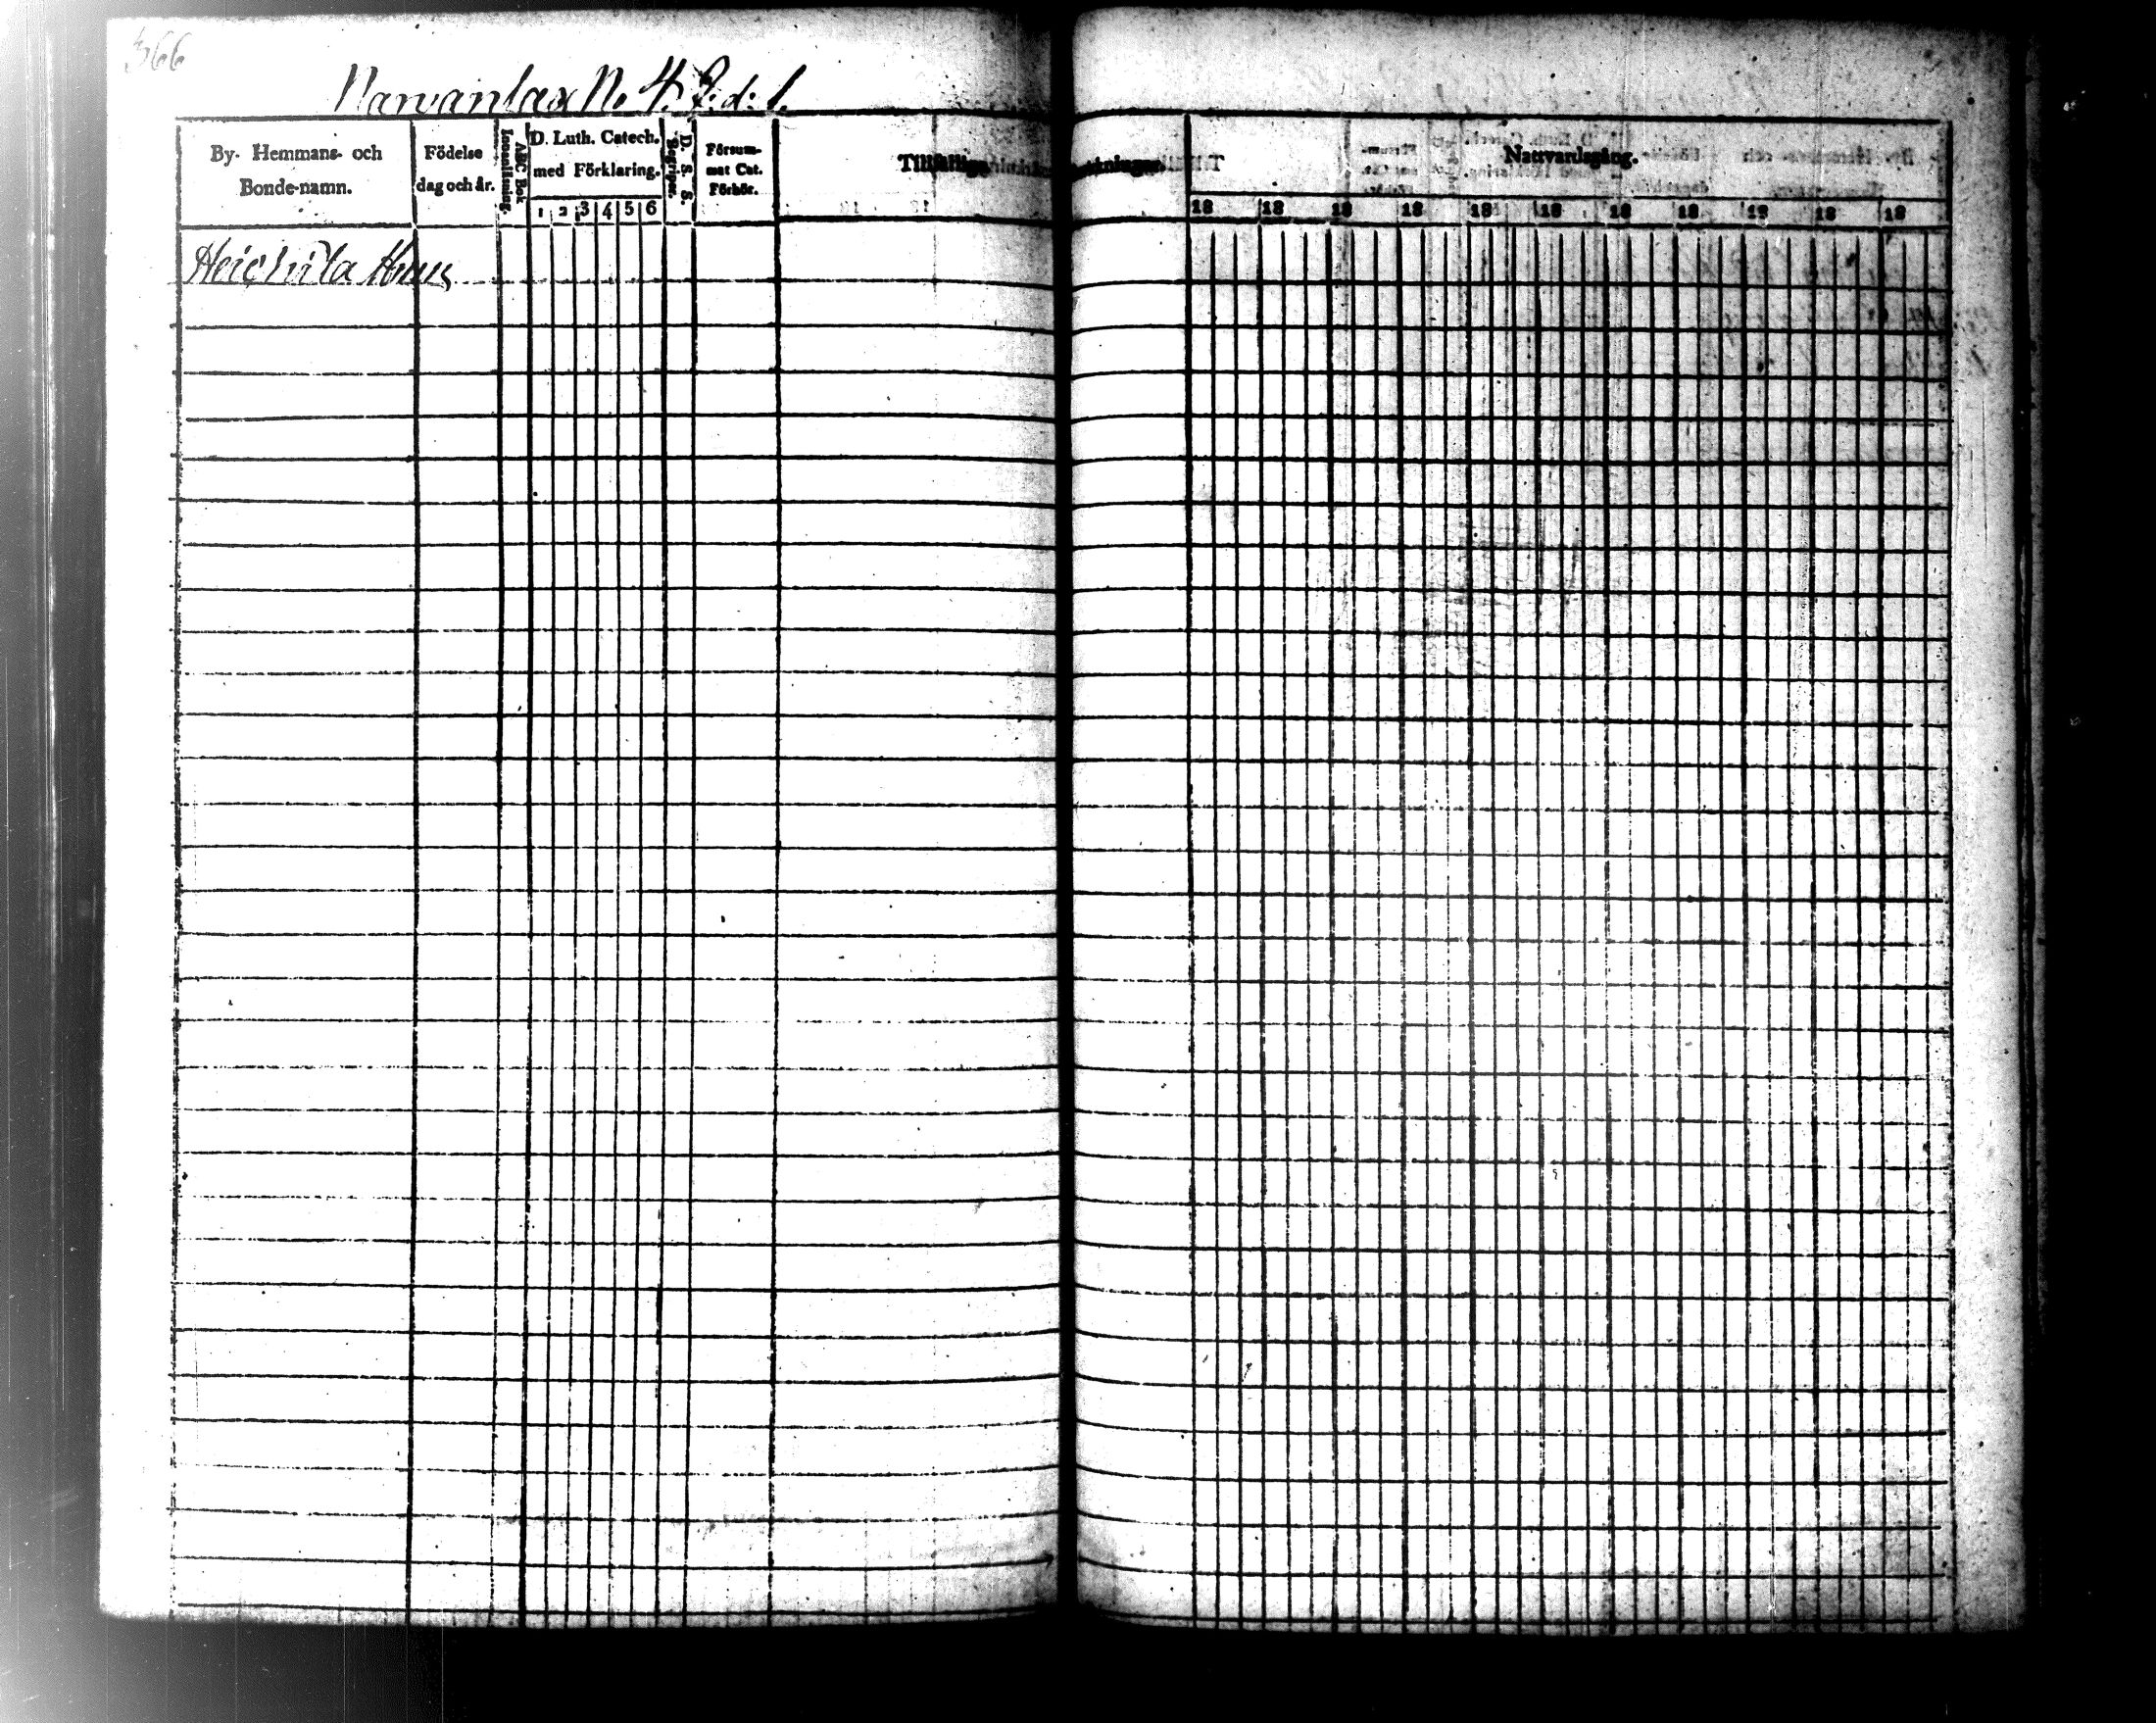 366
Narvanlax N. 4. 2. d: 1.
By- Hemmans- och Bonde-namn.
Födelse dag och år.
ABC Bok Innanläsning.
D. Luth. Catech. med Förklaring.
1 2 3 4 5 6
D. S. S. Begripe.
Försum- mat Cat. Förhör.
Tillfällige Anmärkningar.
Nattvardsgång.
18 18 18 18 18 18 18 18 18 18 18
Heickila